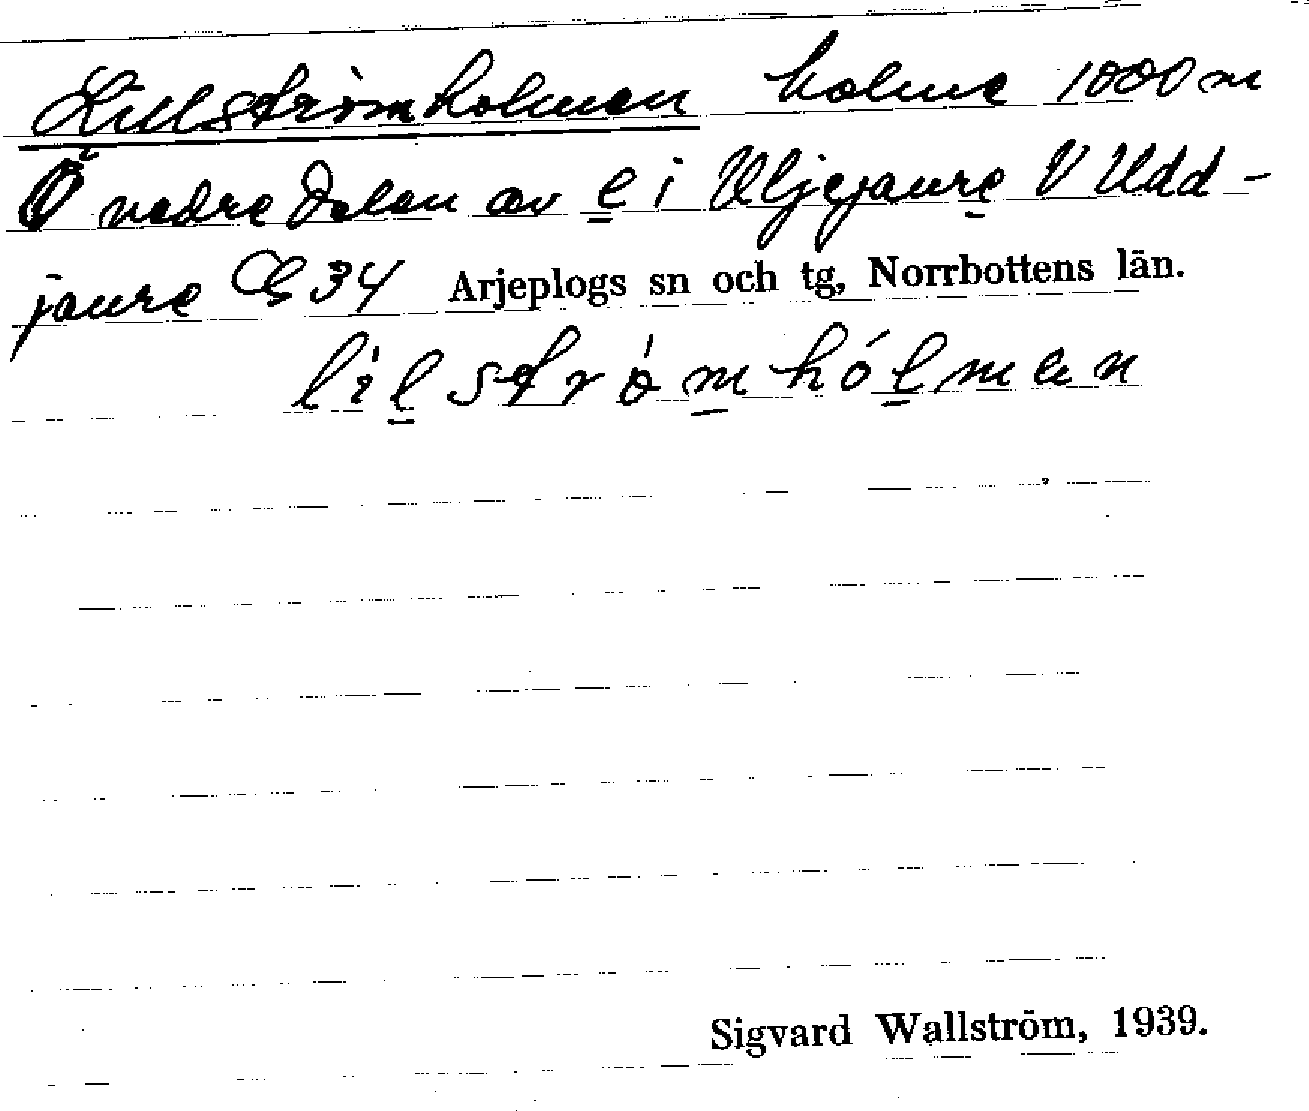 Lillströmholmen holme 1000 m
Ö nedre delen av e i Uljejaure V Udd-
jaure CG 34 Arjeplogs sn och tg, Norrbottens län.
lìlströ̀mhólmen
Sigvard Wallström, 1939.